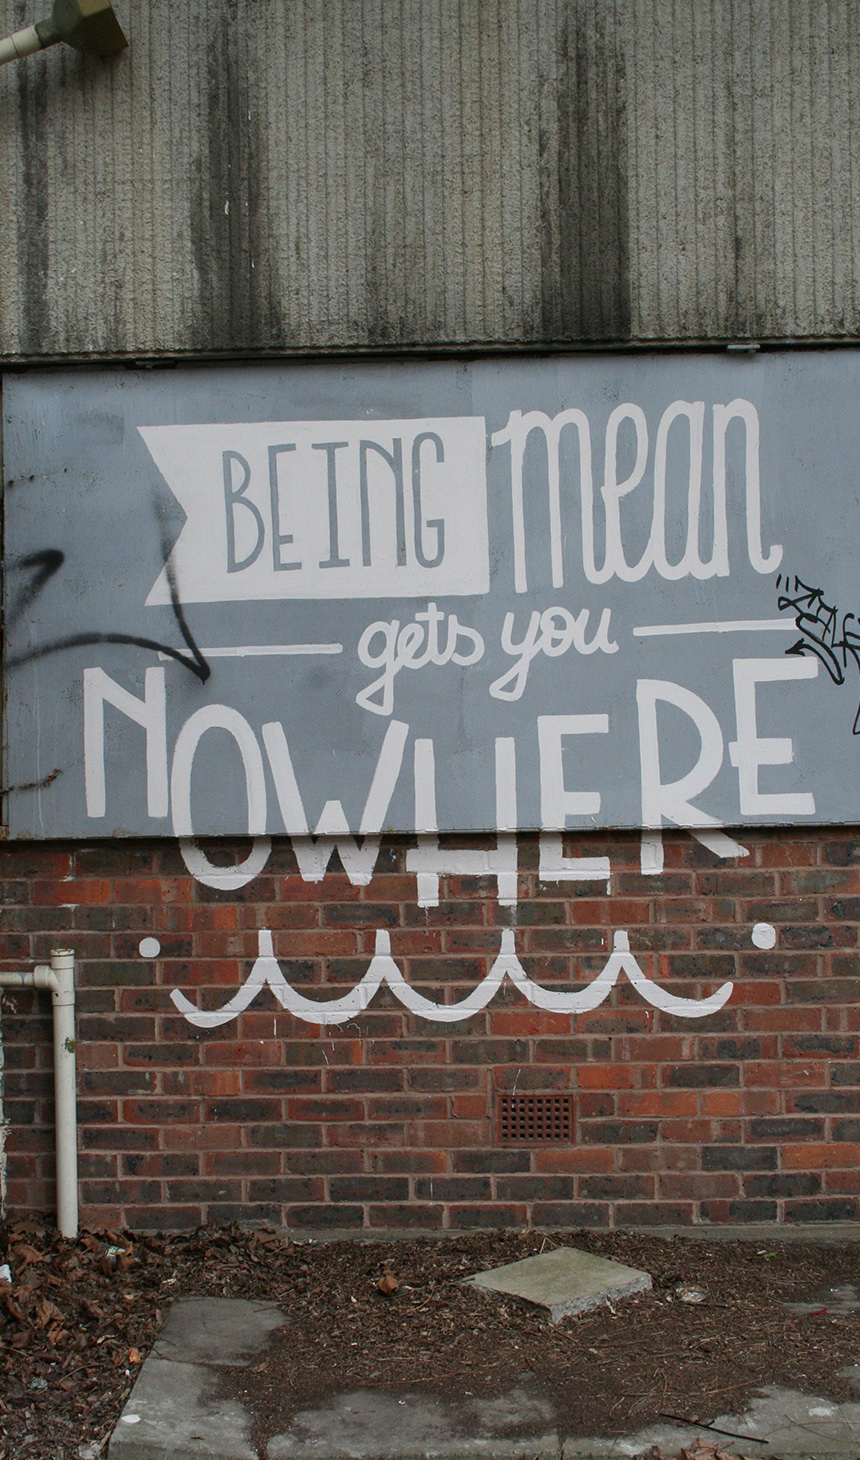 BEING mean
gets you
NOWHERE